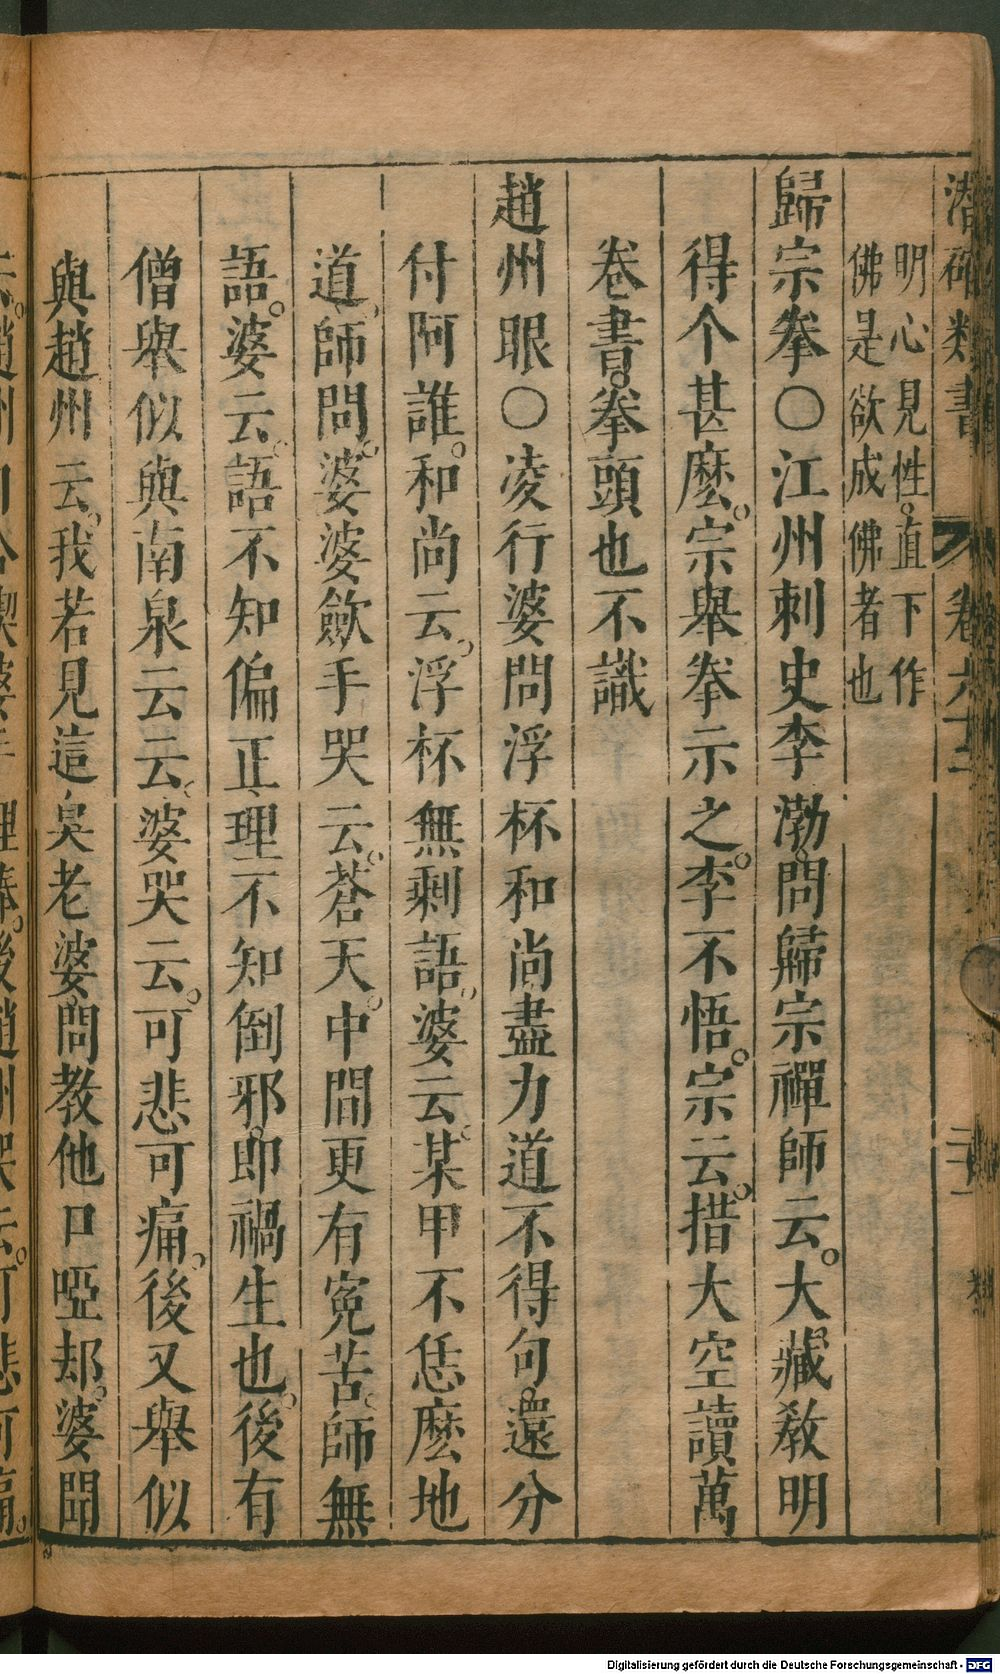 潛確類書 卷六十二
明心見性。直下作
佛是欲成佛者也
歸宗拳〇江州刺史李渤。問歸宗禪師云。大藏教明
得个甚麽。宗舉拳示之。李不悟。宗云。措大空讀萬
卷書。拳頭也不識
趙州眼〇凌行婆問浮杯和尚盡力道不得句。還分
付阿誰。和尚云。浮杯無剩語。婆云。某甲不恁麽地
道。師問。婆婆歛手哭云。蒼天。中間更有寃苦。師無
語。婆云。語不知偏正。理不知倒邪。即禍生也。後有
僧舉似與南泉云云。婆哭云。可悲可痛。後又舉似
與趙州云。我若見這臭老婆。問教他口啞却。婆聞
Digitalisierung gefördert durch die Deutsche Forschungsgemeinschaft - DFG